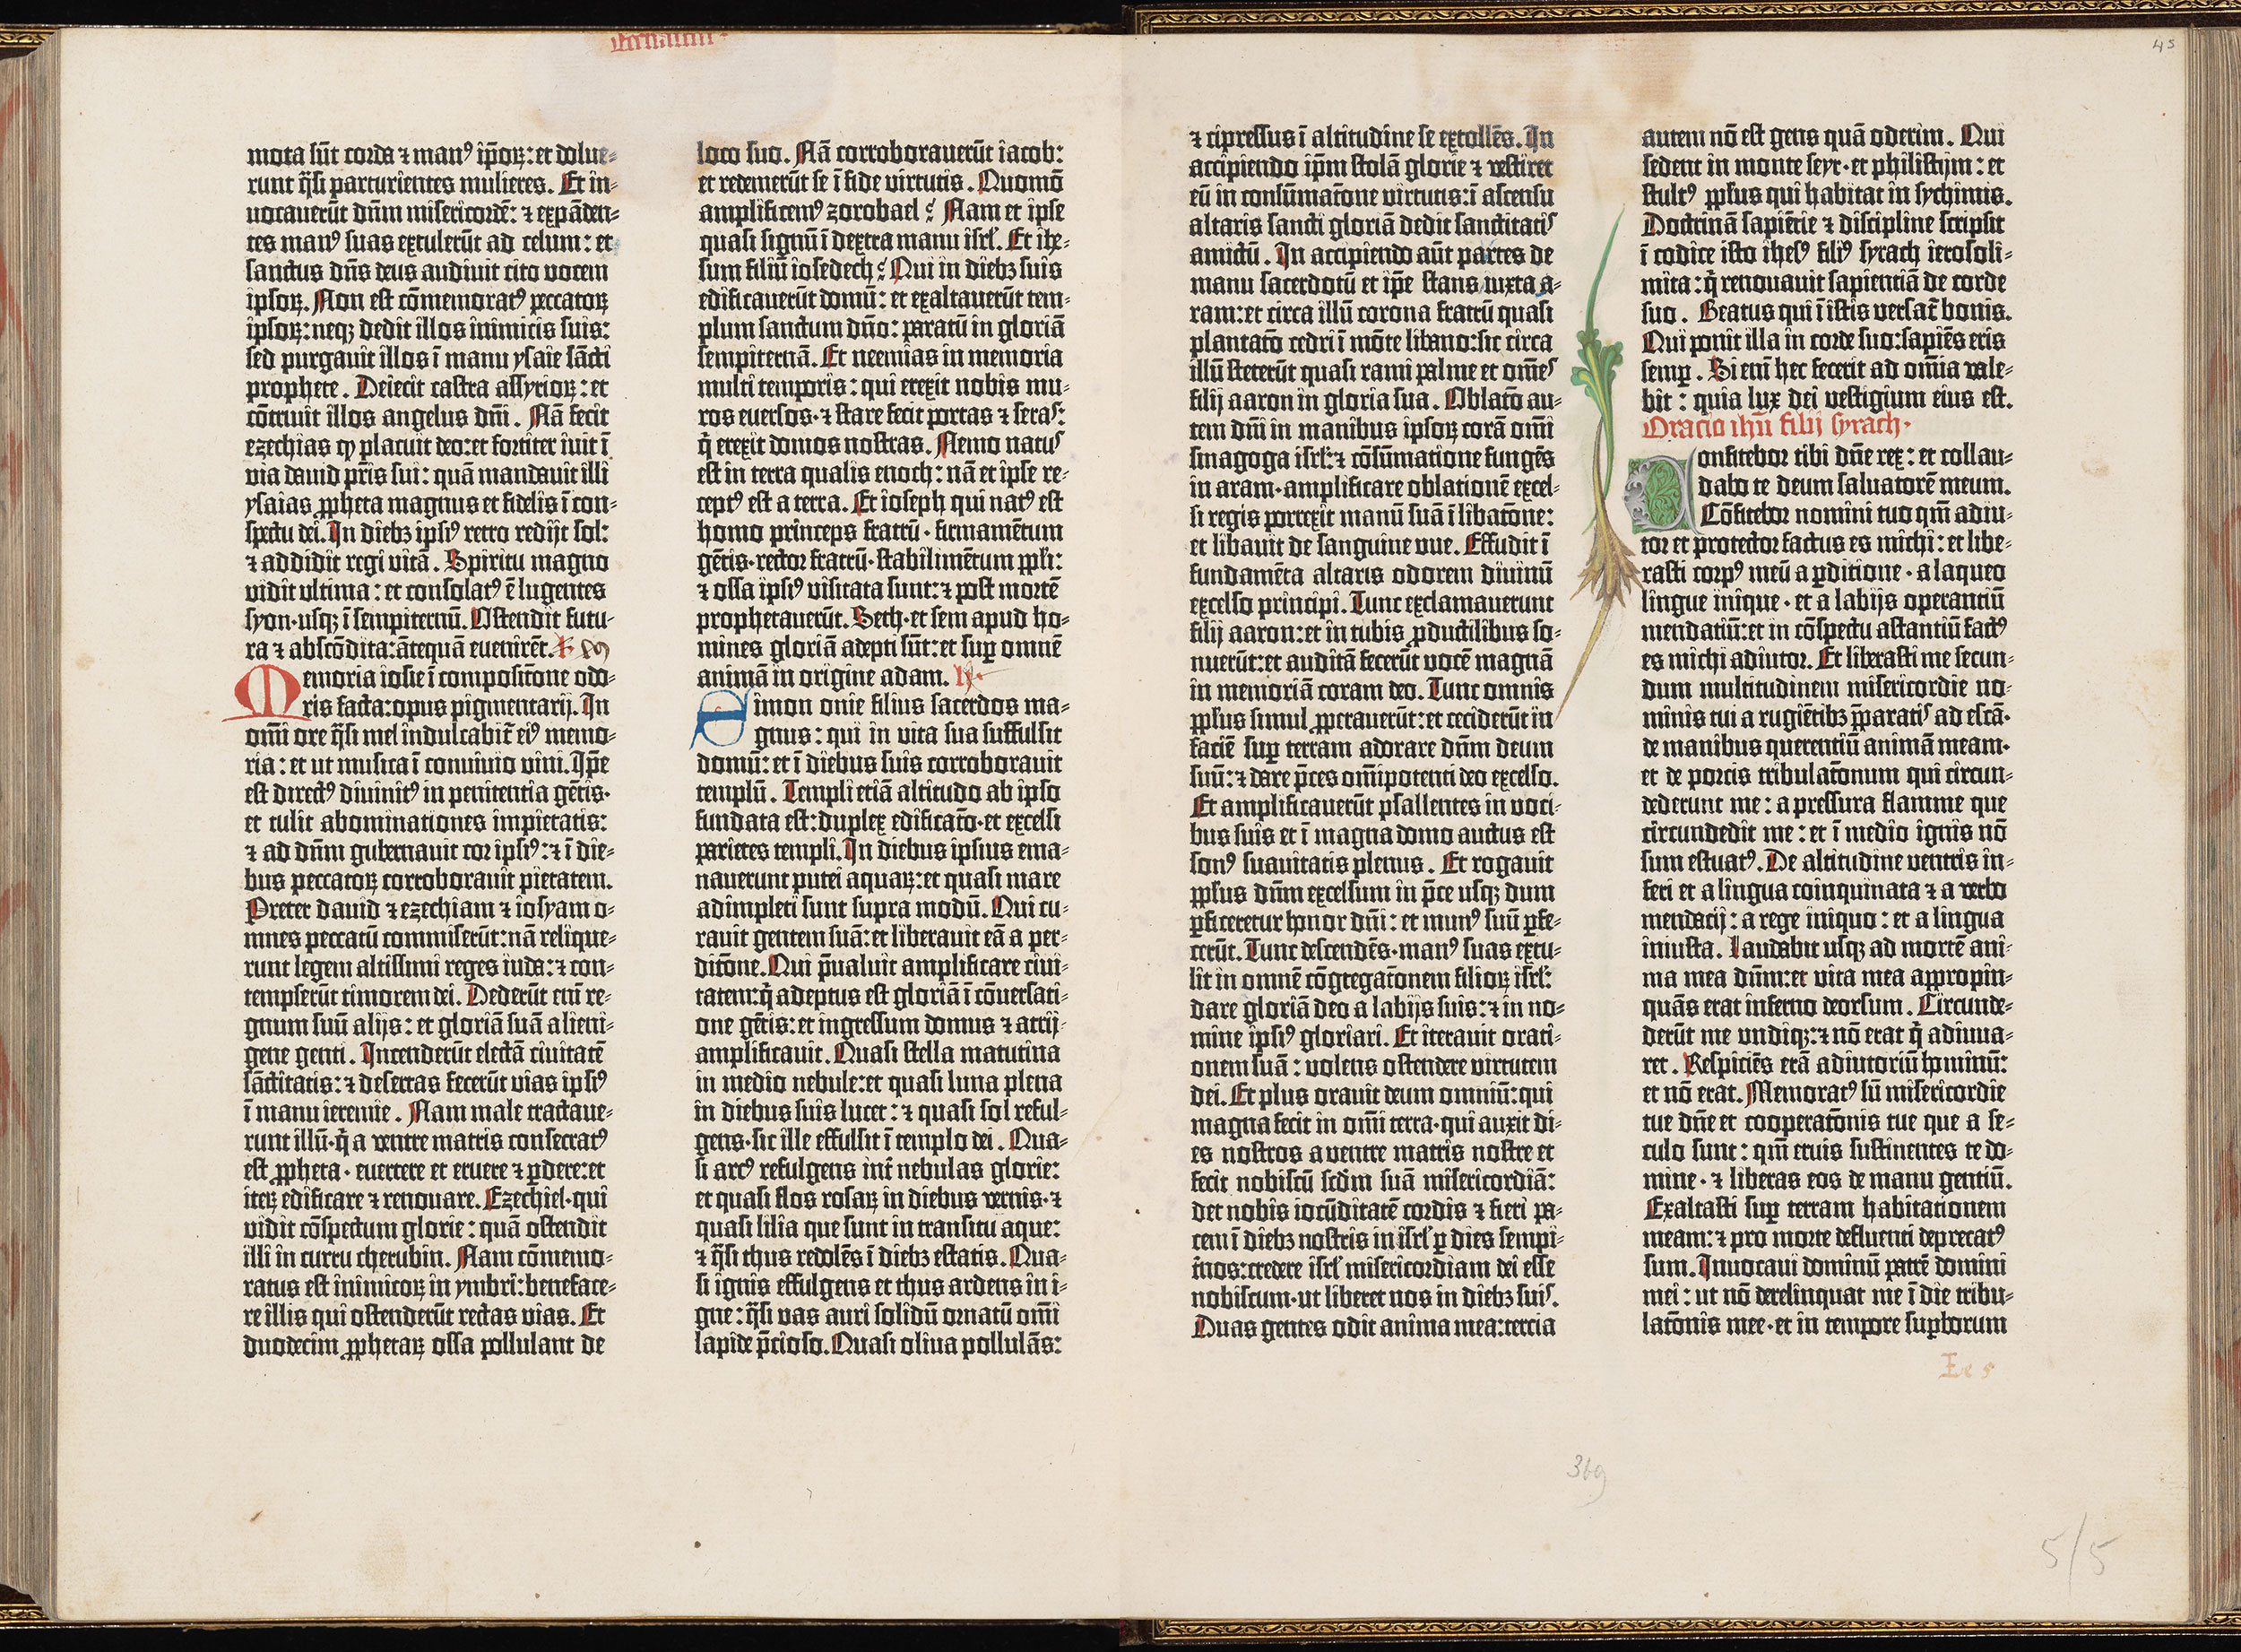 mota sūt corda ⁊ manꝰ ip̄oꝝ: et dolue⸗
runt q̄si parturientes mulieres. Et in⸗
uocauerūt dn̄m misericordē: ⁊ expāden⸗
tes manꝰ suas extulerūt ad celum: et
sanctus dn̄s deus audiuit cito vocem
ipsoꝝ. Non est cōmemoratꝰ peccatoꝝ
ipsoꝝ: neqꝫ dedit illos inimicis suis:
sed purgauit illos ī manu ysaie sācti
prophete. Deiecit castra assyrioꝝ: et
cōtriuit illos angelus dn̄i. Nā fecit
ezechias qꝫ placuit deo: et fortiter iuit ī
via dauid pr̄is sui: quā mandauit illi
ysaias ꝓpheta magnus et fidelis ī con⸗
spectu dei. In diebꝫ ipsiꝰ retro redijt sol:
⁊ addidit regi vitā. Spiritu magno
vidit ultima: et consolatꝰ ē lugentes
syon · usqꝫ ī sempiternū. Ostendit futu⸗
ra ⁊ abscōdita: ātequā euenirēt.
Memoria iosie ī compositōne odo⸗
ris facta: opus pigmentarij. In
om̄i ore q̄si mel indulcabit̄ eiꝰ memo⸗
ria: et ut musica ī conuiuio vini. Ip̄e
est directꝰ diuinitꝰ in penitentia gētis ·
et tulit abominationes impietatis:
⁊ ad dn̄m gubernauit cor ipsiꝰ: ⁊ ī die⸗
bus peccatoꝝ corroborauit pietatem.
Preter dauid ⁊ ezechiam ⁊ iosyam o⸗
mnes peccatū commiserūt: nā relique⸗
runt legem altissimi reges iuda: ⁊ con⸗
tempserūt timorem dei. Dederūt eni̅ re⸗
gnum suū alijs: et gloriā suā alieni⸗
gene genti. Incenderūt electā ciuitatē
sāctitatis: ⁊ desertas fecerūt vias ipsiꝰ
ī manu ieremie. Nam male tractaue⸗
runt illū · q̄ a ventre matris consecratꝰ
est ꝓpheta · euertere et eruere ⁊ ꝑdere: et
iteꝝ edificare ⁊ renouare. Ezechiel · qui
vidit cōspectum glorie: quā ostendit
illi in curru cherubin. Nam cōmemo⸗
ratus est inimicoꝝ in ymbri: beneface⸗
re illis qui ostenderūt rectas vias. Et
duodecim ꝓphetaꝝ ossa pollulant de
loco suo. Nā corroborauerūt iacob:
et redemerūt se ī fide virtutis. Quomō
amplificemꝰ zorobael? Nam et ipse
quasi signū ī dextra manu isrl̄. Et ihe⸗
sum filiū iosedech? Qui in diebꝫ suis
edificauerūt domū: et exaltauerūt tem⸗
plum sanctum dn̄o: paratū in gloriā
sempiternā. Et neemias in memoria
multi temporis: qui erexit nobis mu⸗
ros euersos · ⁊ stare fecit portas ⁊ seras:
q̄ erexit domos nostras. Nemo natus
est in terra qualis enoch: nā et ipse re⸗
ceptꝰ est a terra. Et ioseph qui natꝰ est
homo princeps fratrū · firmamētum
gētis · rector fratrū · stabilimētum ppl̄i:
⁊ ossa ipsiꝰ visitata sunt: ⁊ post mortē
prophetauerūt. Seth · et sem apud ho⸗
mines gloriā adepti sūt: et suꝑ omnē
animā in origine adam. l
Simon onie filius sacerdos ma⸗
gnus: qui in vita sua suffulsit
domū: et ī diebus suis corroborauit
templū. Templi etiā altitudo ab ipso
fundata est: duplex edificatō · et excelsi
parietes templi. In diebus ipsius ema⸗
nauerunt putei aquaꝝ: et quasi mare
adimpleti sunt supra modū. Qui cu⸗
rauit gentem suā: et liberauit eā a per⸗
ditōne. Qui p̄ualuit amplificare ciui⸗
tatem: q̄ adeptus est gloriā ī cōuersati⸗
one gētis: et ingressum domus ⁊ atrij ·
amplificauit. Quasi stella matutina
in medio nebule: et quasi luna plena
in diebus suis lucet: ⁊ quasi sol reful⸗
gens · sic ille effulsit ī templo dei. Qua⸗
si arcꝰ refulgens int̄ nebulas glorie:
et quasi flos rosaꝝ in diebus vernis · ⁊
quasi lilia que sunt in transitu aque:
⁊ q̄si thus redolēs ī diebꝫ estatis. Qua⸗
si ignis effulgens et thus ardens in i⸗
gne: q̄si vas auri solidū ornatū om̄i
lapide p̄cioso. Quasi oliua pollulās:
⁊ cipressus ī altitudine se extollēs. In
accipiendo ip̄m stolā glorie ⁊ vestiret
eū in consūmatōne virtutis: ī ascensu
altaris sancti gloriā dedit sanctitatis
amictū. In accipiendo aūt partes de
manu sacerdotū et ip̄e stans iuxta a⸗
ram: et circa illū corona fratrū quasi
plantatō cedri ī mōte libano: sic circa
illū steterūt quasi rami palme et om̄es
filij aaron in gloria sua. Oblatō au⸗
tem dn̄i in manibus ipsoꝝ corā om̄i
sinagoga isrl̄: ⁊ cōsūmatione fungēs
in aram · amplificare oblationē excel⸗
si regis porrexit manū suā ī libatōne:
et libauit de sanguine vue. Effudit ī
fundamēta altaris odorem diuinū
excelso principi. Tunc exclamauerunt
filij aaron: et in tubis ꝓductilibus so⸗
nuerūt: et auditā fecerūt vocē magnā
in memoriā coram deo. Tunc omnis
ppl̄us simul ꝓperauerūt: et ceciderūt in
faciē suꝑ terram adorare dn̄m deum
suū: ⁊ dare p̄ces om̄ipotenti deo excelso.
Et amplificauerūt psallentes in voci⸗
bus suis et ī magna domo auctus est
sonꝰ suauitatis plenus. Et rogauit
ppl̄us dn̄m excelsum in p̄ce usqꝫ dum
ꝑficeretur honor dn̄i: et munꝰ suū ꝑfe⸗
cerūt. Tunc descendēs · manꝰ suas extu⸗
lit in omnē cōgregatōnem filioꝝ isrl̄:
dare gloriā deo a labijs suis: ⁊ in no⸗
mine ipsiꝰ gloriari. Et iterauit orati⸗
onem suā: volens ostendere virtutem
dei. Et plus orauit deum omniū: qui
magna fecit in om̄i terra · qui auxit di⸗
es nostros a ventre matris nostre et
fecit nobiscū scd̄m suā misericordiā:
det nobis iocūditatē cordis ⁊ fieri pa⸗
cem ī diebꝫ nostris in isrl̄ ꝑ dies sempi⸗
t̄nos: credere isrl̄ misericordiam dei esse
nobiscum · ut liberet nos in diebꝫ suis.
Duas gentes odit anima mea: tercia
45
autem nō est gens quā oderim. Qui
sedent in monte seyr · et philistijm: et
stultꝰ ppl̄us qui habitat in sychimis.
Doctrinā sapiētie ⁊ discipline scripsit
ī codice isto ihesꝰ filiꝰ syrach ierosoli⸗
mita: q̄ renouauit sapientiā de corde
suo. Beatus qui ī istis versat̄ bonis.
Qui ponit illa in corde suo: sapiēs erit
semꝑ. Si eni̅ hec fecerit ad om̄ia vale⸗
bit: quia lux dei vestigium eius est.
Oracio ihū filij syrach ·
Confitebor tibi dn̄e rex: et collau⸗
dabo te deum saluatorē meum.
Cōfitebor nomini tuo qm̄ adiu⸗
tor et protector factus es michi: et libe⸗
rasti corpꝰ meū a ꝑditione · a laqueo
lingue inique · et a labijs operantiū
mendatiū: et in cōspectu astantiū factꝰ
es michi adiutor. Et liberasti me secun⸗
dum multitudinem misericordie no⸗
minis tui a rugiētibꝫ p̄paratis ad escā ·
de manibus querentiū animā meam ·
et de porcis tribulatōnum qui circun⸗
dederunt me: a pressura flamme que
circundedit me: et ī medio ignis nō
sum estuatꝰ. De altitudine ventris in⸗
feri et a lingua coinquinata ⁊ a verbo
mendacij: a rege iniquo: et a lingua
iniusta. Laudabit usqꝫ ad mortē ani⸗
ma mea dn̄m: et vita mea appropin⸗
quās erat inferno deorsum. Circunde⸗
derūt me undiqꝫ: ⁊ nō erat q̄ adiuua⸗
ret. Respiciēs erā adiutoriū hominū:
et nō erat. Memoratꝰ sū misericordie
tue dn̄e et cooperatōnis tue que a se⸗
culo sunt: qm̄ eruis sustinentes te do⸗
mine · ⁊ liberas eos de manu gentiū.
Exaltasti suꝑ terram habitationem
meam: ⁊ pro morte defluenti deprecatꝰ
sum. Inuocaui dominū patrē domini
mei: ut nō derelinquat me ī die tribu⸗
latōnis mee · et in tempore suꝑborum
369
5/5